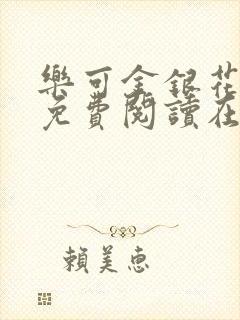 樂可金銀花
免費閱讀在
賴美惠